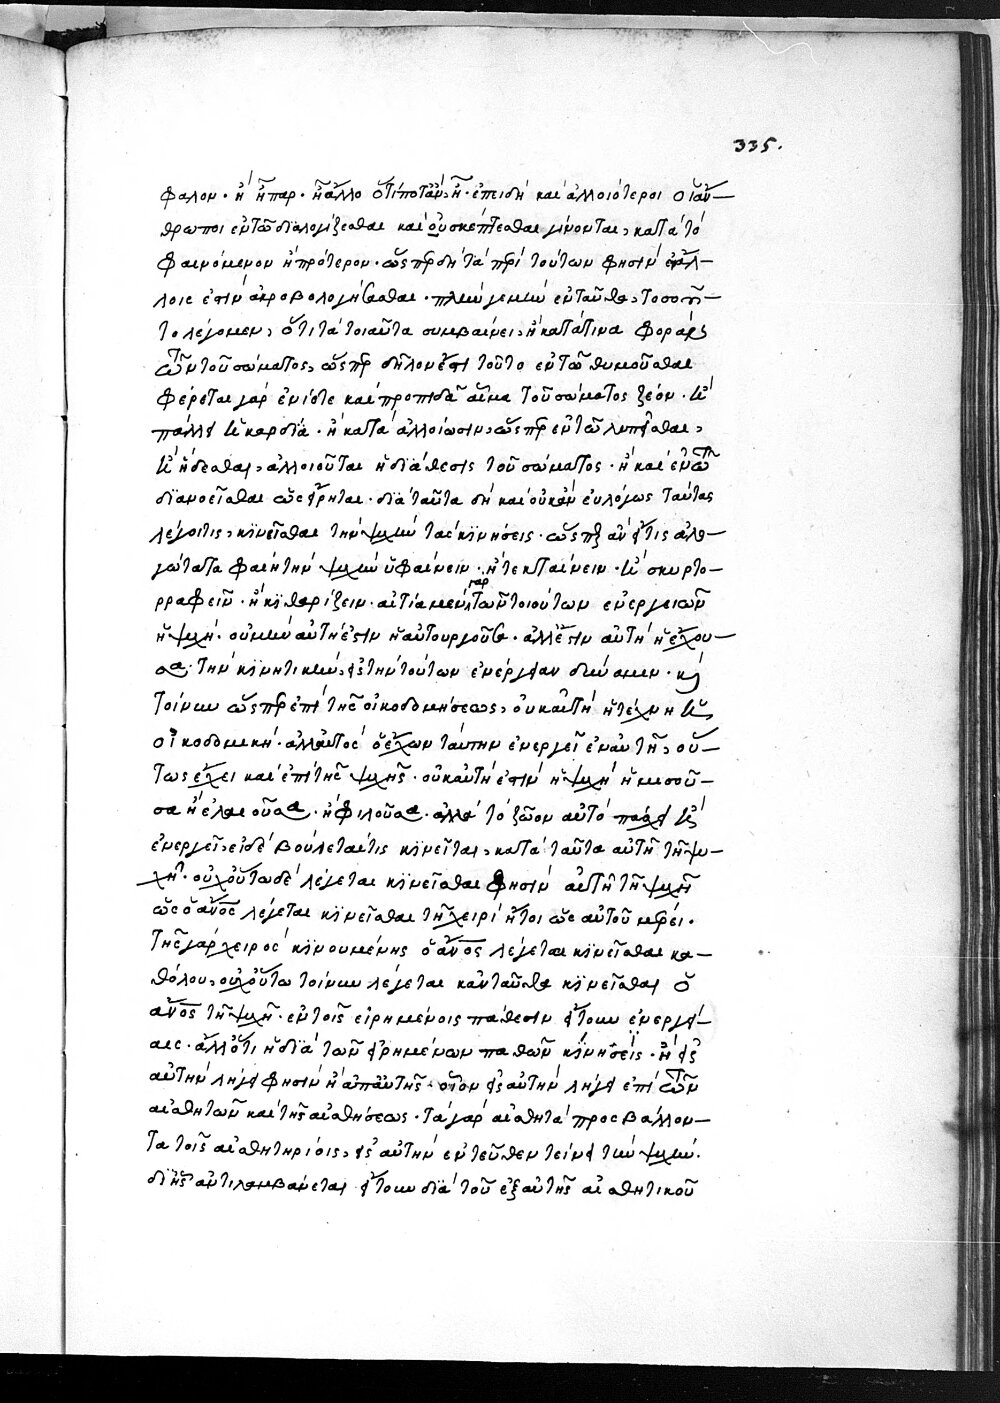 335.
φαλον· ἢ ἧπαρ· ἢ ἄλλο ὅτι ποτ' ἂν ἦ· ἐπειδὴ καὶ ἀλλοιότεροι οἱ ἄν-
θρωποι ἐν τῶ διαλογίζεσθαι καὶ οὐ σκέπτεσθαι γίνονται, κατὰ τὸ
φαινόμενον ἢ πρότερον· ὥσπερ δὴ τὰ περὶ τούτων φησὶν ἐν ἄλ-
λοις ἐστὶν ἀκροβολογήσασθαι· πλὴν ἐνταῦθα, τοσοῦ-
το λέγομεν, ὅτι τὰ τοιαῦτα συμβαίνει, ἢ κατά τινα φορὰν
τῶν τοῦ σώματος, ὥσπερ δῆλον ἐστὶ τοῦτο ἐν τῶ θυμοῦσθαι
φέρεται γὰρ ἐνίοτε καὶ προπηδᾶ αἷμα τοῦ σώματος ζέον· καὶ
πάλλει ἡ καρδία· ἢ κατὰ ἀλλοίωσιν, ὥσπερ ἐν τῶ λυπεῖσθαι,
καὶ ἥδεσθαι, ἀλλοιοῦται ἡ διάθεσις τοῦ σώματος· ἢ καὶ ἐν τῶ
διανοεῖσθαι ὡς εἴρηται· διὰ ταῦτα δὴ καὶ οὐκ ἂν εὐλόγως ταύτας
λέγοι τις, κινεῖσθαι τὴν ψυχὴν τὰς κινήσεις· ὥσπερ ἂν εἴ τις ἀλο-
γώτατα φαίη τὴν ψυχὴν ὑφαίνειν· ἢ τεκταίνειν· καὶ σκυρτο-
ρραφεῖν· ἢ κιθαρίζειν· αἰτία μὲν γὰρ τῶν τοιούτων ἐνεργειῶν
ἡ ψυχή· οὐ μὴν αὐτή ἐστιν ἡ αὐτουργοῦσα· ἀλλ' ἔστιν αὐτὴ ἡ ἔχου-
σα· τὴν κινητικὴν εἰς τὴν τούτων ἐνέργειαν δύναμιν· καὶ
τοίνυν ὥσπερ ἐπὶ τῆς οἰκοδομήσεως, οὐκ αὐτὴ ἡ τέχνη ἡ
οἰκοδομική· ἀλλ' αὐτὸς ὁ ἔχων ταύτην ἐνεργεῖ ἐν αὐτῆ, οὕ-
τως ἔχει καὶ ἐπὶ τῆς ψυχῆς· οὐκ αὐτή ἐστιν ἡ ψυχὴ ἡ μισοῦ-
σα ἢ ἐλεοῦσα· ἢ φιλοῦσα· ἀλλὰ τὸ ζῶον αὐτὸ πάσχει καὶ
ἐνεργεῖ, εἰ δὲ βούλεται τις κινεῖται, κατὰ ταῦτα αὐτῆ τῆ ψυ-
χῆ· οὐχ οὕτω δὲ λέγεται κινεῖσθαι φησὶν αὐτῆ τῆ ψυχῆ
ὡς ὁ ἄνος λέγεται κινεῖσθαι τῆ χειρὶ ἤτοι ὡς αὐτοῦ μέρει·
τῆς γὰρ χειρὸς κινουμένης ὁ ἄνος λέγεται κινεῖσθαι κα-
θόλου, οὐχ οὕτω τοίνυν λέγεται κἀνταῦθα κινεῖσθαι ὁ
ἄνος τῆ ψυχῆ· ἐν τοῖς εἰρημένοις πάθεσιν εἴτουν ἐνεργεί-
αις· ἀλλ' ὅτι ἡ διὰ τῶν εἰρημένων παθῶν κίνησις· ἢ εἰς
αὐτὴν λήγει φησὶν ἢ ἀπ' αὐτῆς· οἷον εἰς αὐτὴν λήγει ἐπὶ τῶν
αἰσθητῶν καὶ τῆς αἰσθήσεως· τὰ γὰρ αἰσθητὰ προσβάλλον-
τα τοῖς αἰσθητηρίοις, εἰς αὐτὴν ἐντεῦθεν τείνει τὴν ψυχήν·
δι' ἧς ἀντιλαμβάνεται εἴτουν διὰ τοῦ ἐξ αὐτῆς αἰσθητικοῦ